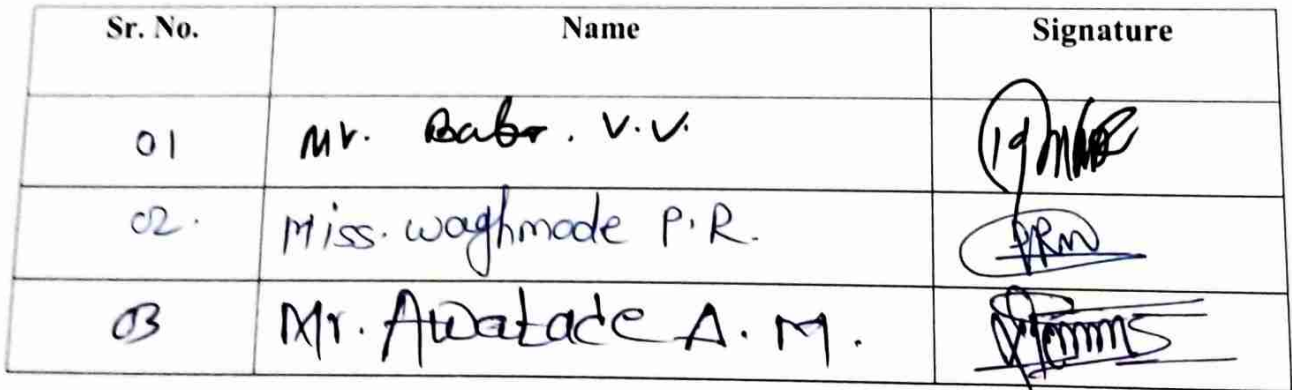 Sr. No. Name Signature
01 Mr. Babr. V.V.
02. Miss. waghmode P.R.
03 Mr. Awatade A. M.